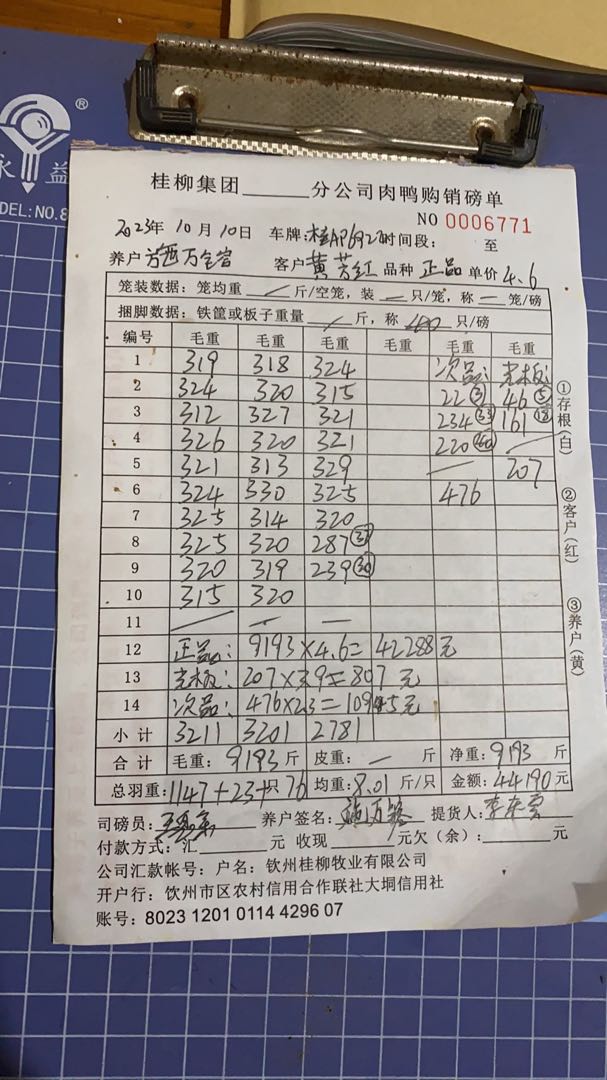 ®
永 益
DEL:NO.8
桂柳集团______分公司肉鸭购销磅单
NO 0006771
2023年 10月 10日 车牌:桂AP692 时间段: 至
养户 客户 黄芳红 品种 正品 单价 4.6
笼装数据: 笼均重 / 斤/空笼, 装 — 只/笼, 称 — 笼/磅
捆脚数据: 铁筐或板子重量 / 斤, 称 只/磅
编号 毛重 毛重 毛重 毛重 毛重 毛重
1 319 318 324 次品: 壳板:
2 324 320 315 22③ 46⑤
3 312 327 321 234㉝ 161⑱
4 326 320 321 220 —
5 321 313 329 — 207
6 324 330 325 476
7 325 314 320
8 325 320 287
9 320 319 239㉚
10 315 320
11 — — —
12 正品: 9193×4.6=42288元
13 壳板: 207×3.9=807元
14 次品: 476×2.3=1095元
小计 3211 3201 2781
合计 毛重: 9193 斤 皮重: — 斤 净重: 9193 斤
总羽重: 1147+23+ 只 76 均重: 8.01 斤/只 金额: 44190 元
司磅员: 养户签名: 提货人:
付款方式: 汇______元 收现______元欠(余): ______元
公司汇款帐号: 户名: 钦州桂柳牧业有限公司
开户行: 钦州市区农村信用合作联社大垌信用社
账号: 8023 1201 0114 4296 07
①存根(白)
②客户(红)
③养户(黄)